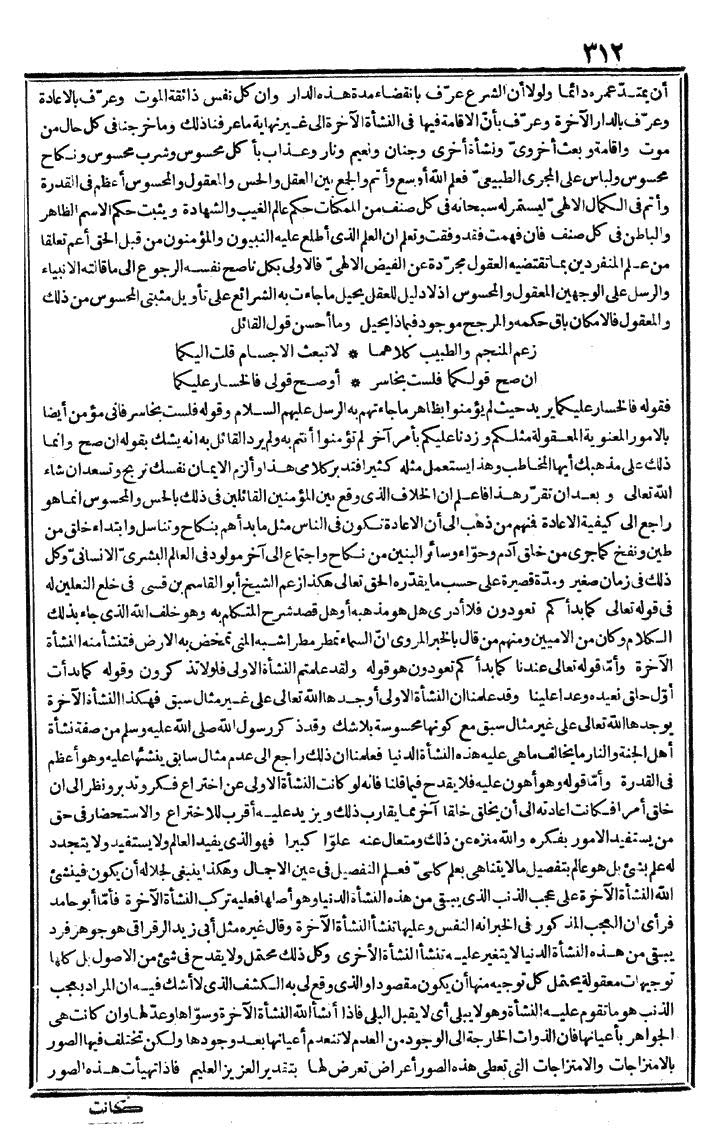 ٣١٢
أن يمتدّ عمره دائما ولولا أن الشرع عرّف بانقضاء مدة هذه الدار وان كل نفس ذائقة الموت وعرّف بالاعادة
وعرّف بالدار الآخرة وعرّف بأنّ الاقامة فيها فى النشأة الآخرة الى غير نهاية ما عرفنا ذلك وما خرجنا فى كل حال من
موت واقامة وبعث أخروىّ ونشأة أخرى وجنان ونعيم ونار وعذاب بأكل محسوس وشرب محسوس ونكاح
محسوس ولباس على المجرى الطبيعىّ فعلم الله أوسع وأتم والجع بين العقل والحس والمعقول والمحسوس أعظم فى القدرة
وأتم فى الكمال الالهىّ ليستمر له سبحانه فى كل صنف من الممكنات حكم عالم الغيب والشهادة ويثبت حكم الاسم الظاهر
والباطن فى كل صنف فان فهمت فقد وفقت وتعلم ان العلم الذى أطلع عليه النبيون والمؤمنون من قبل الحق أعم تعلقا
من علم المنفردين بما تقتضيه العقول مجرّدة عن الفيض الالهىّ فالاولى بكل ناصح نفسه الرجوع الى ما قالته الانبياء
والرسل على الوجهين المعقول والمحسوس اذ لا دليل للعقل يحيل ما جاءت به الشرائع على تأويل مثبتى المحسوس من ذلك
والمعقول فالامكان باق حكمه والمرجح موجود فبماذا يحيل وما أحسن قول القائل
زعم المنجم والطبيب كلاهما * لا تبعث الاجسام قلت اليكما
ان صح قولكما فلست بخاسر * أو صح قولى فالخسار عليكما
فقوله فالخسار عليكما يريد حيث لم يؤمنوا بظاهر ما جاءتهم به الرسل عليهم السلام وقوله فلست بخاسر فانى مؤمن أيضا
بالامور المعنوية المعقولة مثلكم وزدنا عليكم بأمر آخر لم تؤمنوا أنتم به ولم يرد القائل به انه يشك بقوله ان صح وانما
ذلك على مذهبك أيها المخاطب وهذا يستعمل مثله كثيرا فتدبر كلامى هذا وألزم الايمان نفسك تربح وتسعد ان شاء
الله تعالى وبعد ان تقرّر هذا فاعلم ان الخلاف الذى وقع بين المؤمنين القائلين فى ذلك بالحس والمحسوس انما هو
راجع الى كيفية الاعادة فمنهم من ذهب الى أن الاعادة تكون فى الناس مثل ما بدأهم بنكاح وتناسل وابتداء خلق من
طين ونفخ كما جرى من خلق آدم وحوّاء وسائر البنين من نكاح واجتماع الى آخر مولود فى العالم البشرىّ الانسانىّ وكل
ذلك فى زمان صغير ومدّة قصيرة على حسب ما يقدّره الحق تعالى هكذا زعم الشيخ أبو القاسم بن قسى فى خلع النعلين له
فى قوله تعالى كما بدأكم تعودون فلا أدرى هل هو مذهبه أو هل قصد شرح المتكلم به وهو خلف الله الذى جاء بذلك
الكلام وكان من الاميين ومنهم من قال بالخبر المروى انّ السماء تمطر مطرا شبه المنى تمخض به الارض فتنشأ منه النشأة
الآخرة وأمّا قوله تعالى عندنا كما بدأكم تعودون هو قوله ولقد علمتم النشأة الاولى فلولا تذكرون وقوله كما بدأنا
أوّل خلق نعيده وعدا علينا وقد علمنا ان النشأة الاولى أوجدها الله تعالى على غير مثال سبق فهكذا النشأة الآخرة
يوجدها الله تعالى على غير مثال سبق مع كونها محسوسة بلا شك وقد ذكر رسول الله صلى الله عليه وسلم من صفة نشأة
أهل الجنة والنار ما يخالف ما هى عليه هذه النشأة الدنيا فعلمنا ان ذلك راجع الى عدم مثال سابق ينشئها عليه وهو أعظم
فى القدرة وأمّا قوله وهو أهون عليه فلا يقدح فيما قلنا فانه لو كانت النشأة الاولى عن اختراع فكر وتدبر ونظر الى ان
خلق أمر افكانت اعادته الى أن يخلق خلقا آخر مما يقارب ذلك ويزيد عليه أقرب للاختراع والاستحضار فى حق
من يستفيد الامور بفكره والله منزه عن ذلك ومتعال عنه علوّا كبيرا فهو الذى يفيد العالم ولا يستفيد ولا يتجدد
له علم بشئ بل هو عالم بتفصيل ما لا يتناهى بعلم كلىّ فعلم التفصيل فى عين الاجمال وهكذا ينبغى لجلاله أن يكون فينشئ
الله النشأة الآخرة على عجب الذنب الذى يبقى من هذه النشأة الدنيا وهو أصلها فعليه تركب النشأة الآخرة فأمّا أبو حامد
فرأى ان العجب المذكور فى الخبر انه النفس وعليها تنشأ النشأة الآخرة وقال غيره مثل أبى زيد الرقراقى هو جوهر فرد
يبقى من هذه النشأة الدنيا لا يتغير عليه تنشأ النشأة الأخرى وكل ذلك محتمل ولا يقدح فى شئ من الاصول بل كلها
توجيهات معقولة يحتمل كل توجيه منها أن يكون مقصودا والذى وقع لى به الكشف الذى لا أشك فيه ان المراد بعجب
الذنب هو ما تقوم عليه النشأة وهو لا يبلى أى لا يقبل البلى فاذا أنشأ الله النشأة الآخرة وسوّاها وعدّلها وان كانت هى
الجواهر بأعيانها فان الذوات الخارجة الى الوجود من العدم لا تنعدم أعيانها بعد وجودها ولكن تختلف فيها الصور
بالامتزاجات والامتزاجات التى تعطى هذه الصور أعراض تعرض لها بتقدير العزيز العليم فاذا تهيأت هذه الصور
كانت